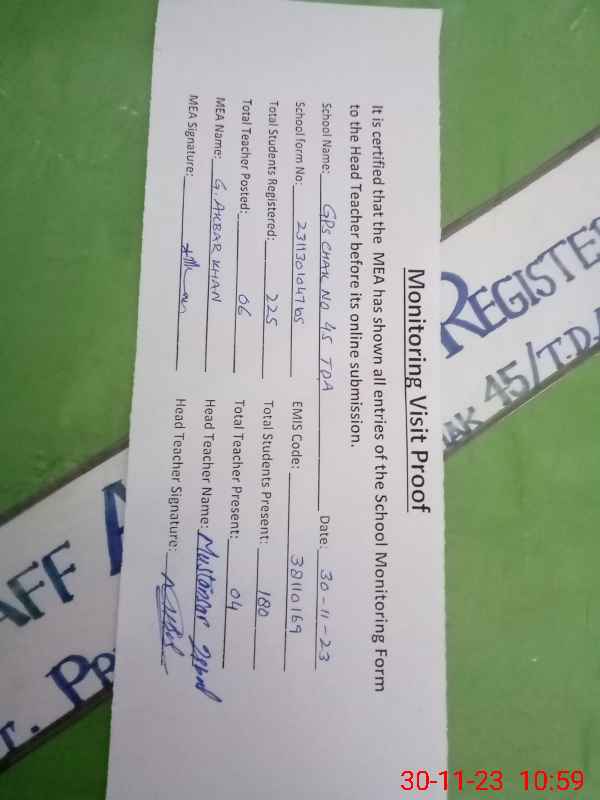 Monitoring Visit Proof
It is certified that the MEA has shown all entries of the School Monitoring Form
to the Head Teacher before its online submission.
School Name: GPS CHAK NO 45 TDA Date: 30-11-23
School form No: 231130104765 EMIS Code: 38110169
Total Students Registered: 225 Total Students Present: 180
Total Teacher Posted: 06 Total Teacher Present: 04
MEA Name: G. AKBAR KHAN Head Teacher Name:
MEA Signature: Head Teacher Signature:
REGISTER
45/T.D.A
30-11-23 10:59